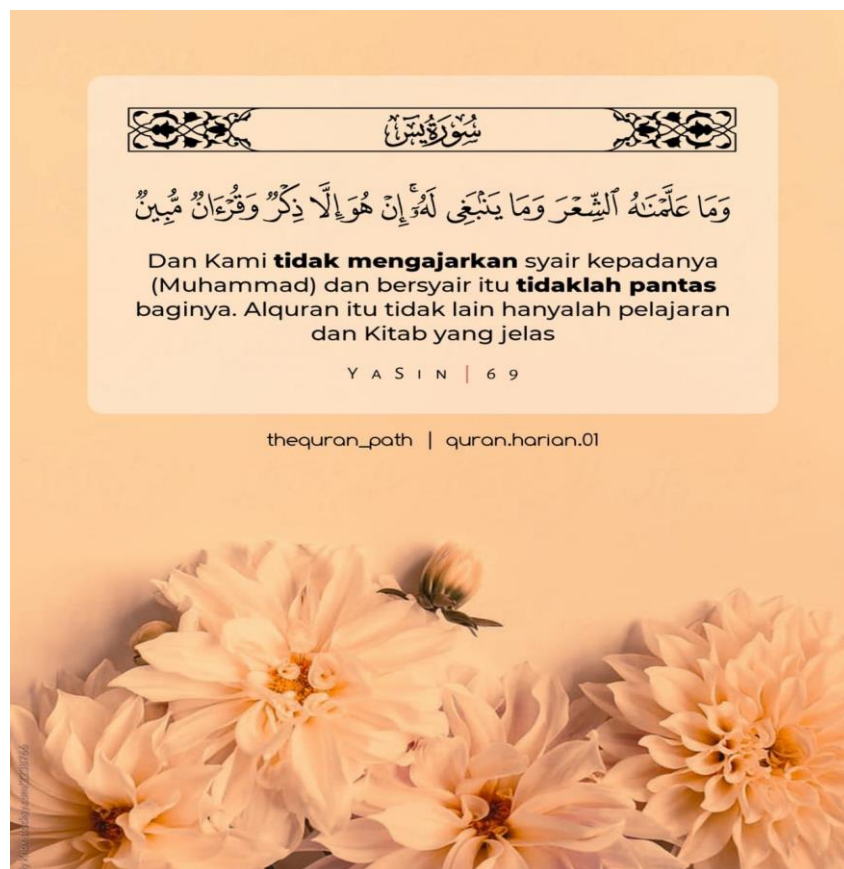 سُورَةُ يسٓ
وَمَا عَلَّمْنَٰهُ ٱلشِّعْرَ وَمَا يَنۢبَغِى لَهُۥٓ ۚ إِنْ هُوَ إِلَّا ذِكْرٌ وَقُرْءَانٌ مُّبِينٌ
Dan Kami tidak mengajarkan syair kepadanya
(Muhammad) dan bersyair itu tidaklah pantas
baginya. Alquran itu tidak lain hanyalah pelajaran
dan Kitab yang jelas
YASIN | 69
thequran_path | quran.harian.01